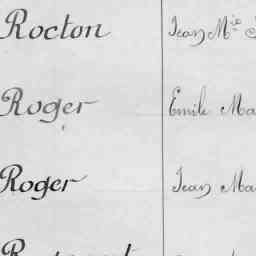 Rocton Jean M.ie
Roger Emile Ma
Roger Jean Ma